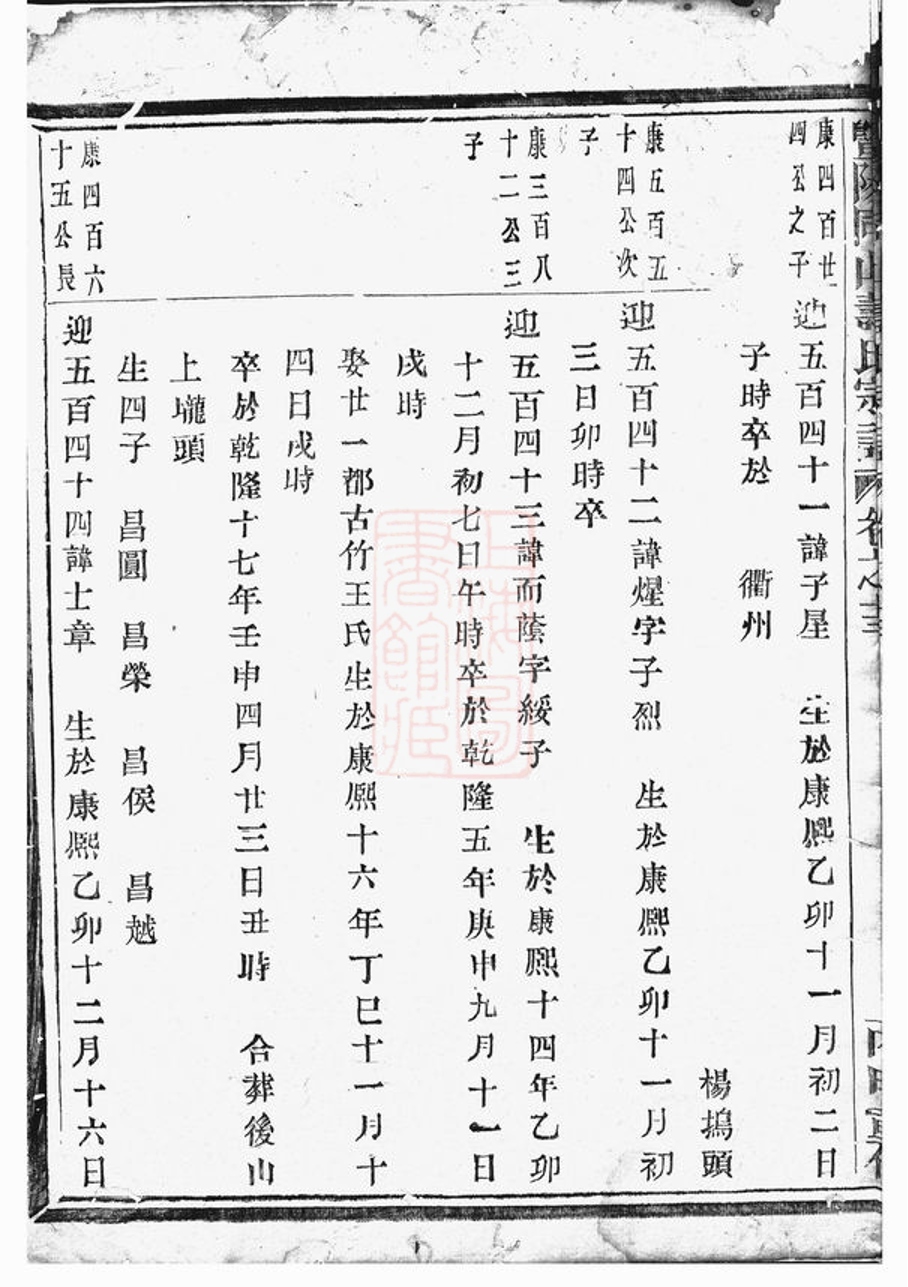 康四百廿
四公之子
迎五百四十一諱子星　生於康熙乙卯十一月初二日
子時卒於　衢州
楊塢頭
康五百五
十四公次
子
迎五百四十二諱煋字子烈　生於康熙乙卯十一月初
三日卯時卒
康三百八
十二公三
子
迎五百四十三諱而蔭字綏子　生於康熙十四年乙卯
十二月初七日午時卒於乾隆五年庚申九月十一日
戌時
娶廿一都古竹王氏生於康熙十六年丁巳十一月十
四日戌時
卒於乾隆十七年壬申四月廿三日丑時　合葬後山
上壠頭
生四子　昌圓　昌榮　昌俟　昌越
康四百六
十五公長
迎五百四十四諱士章　生於康熙乙卯十二月十六日